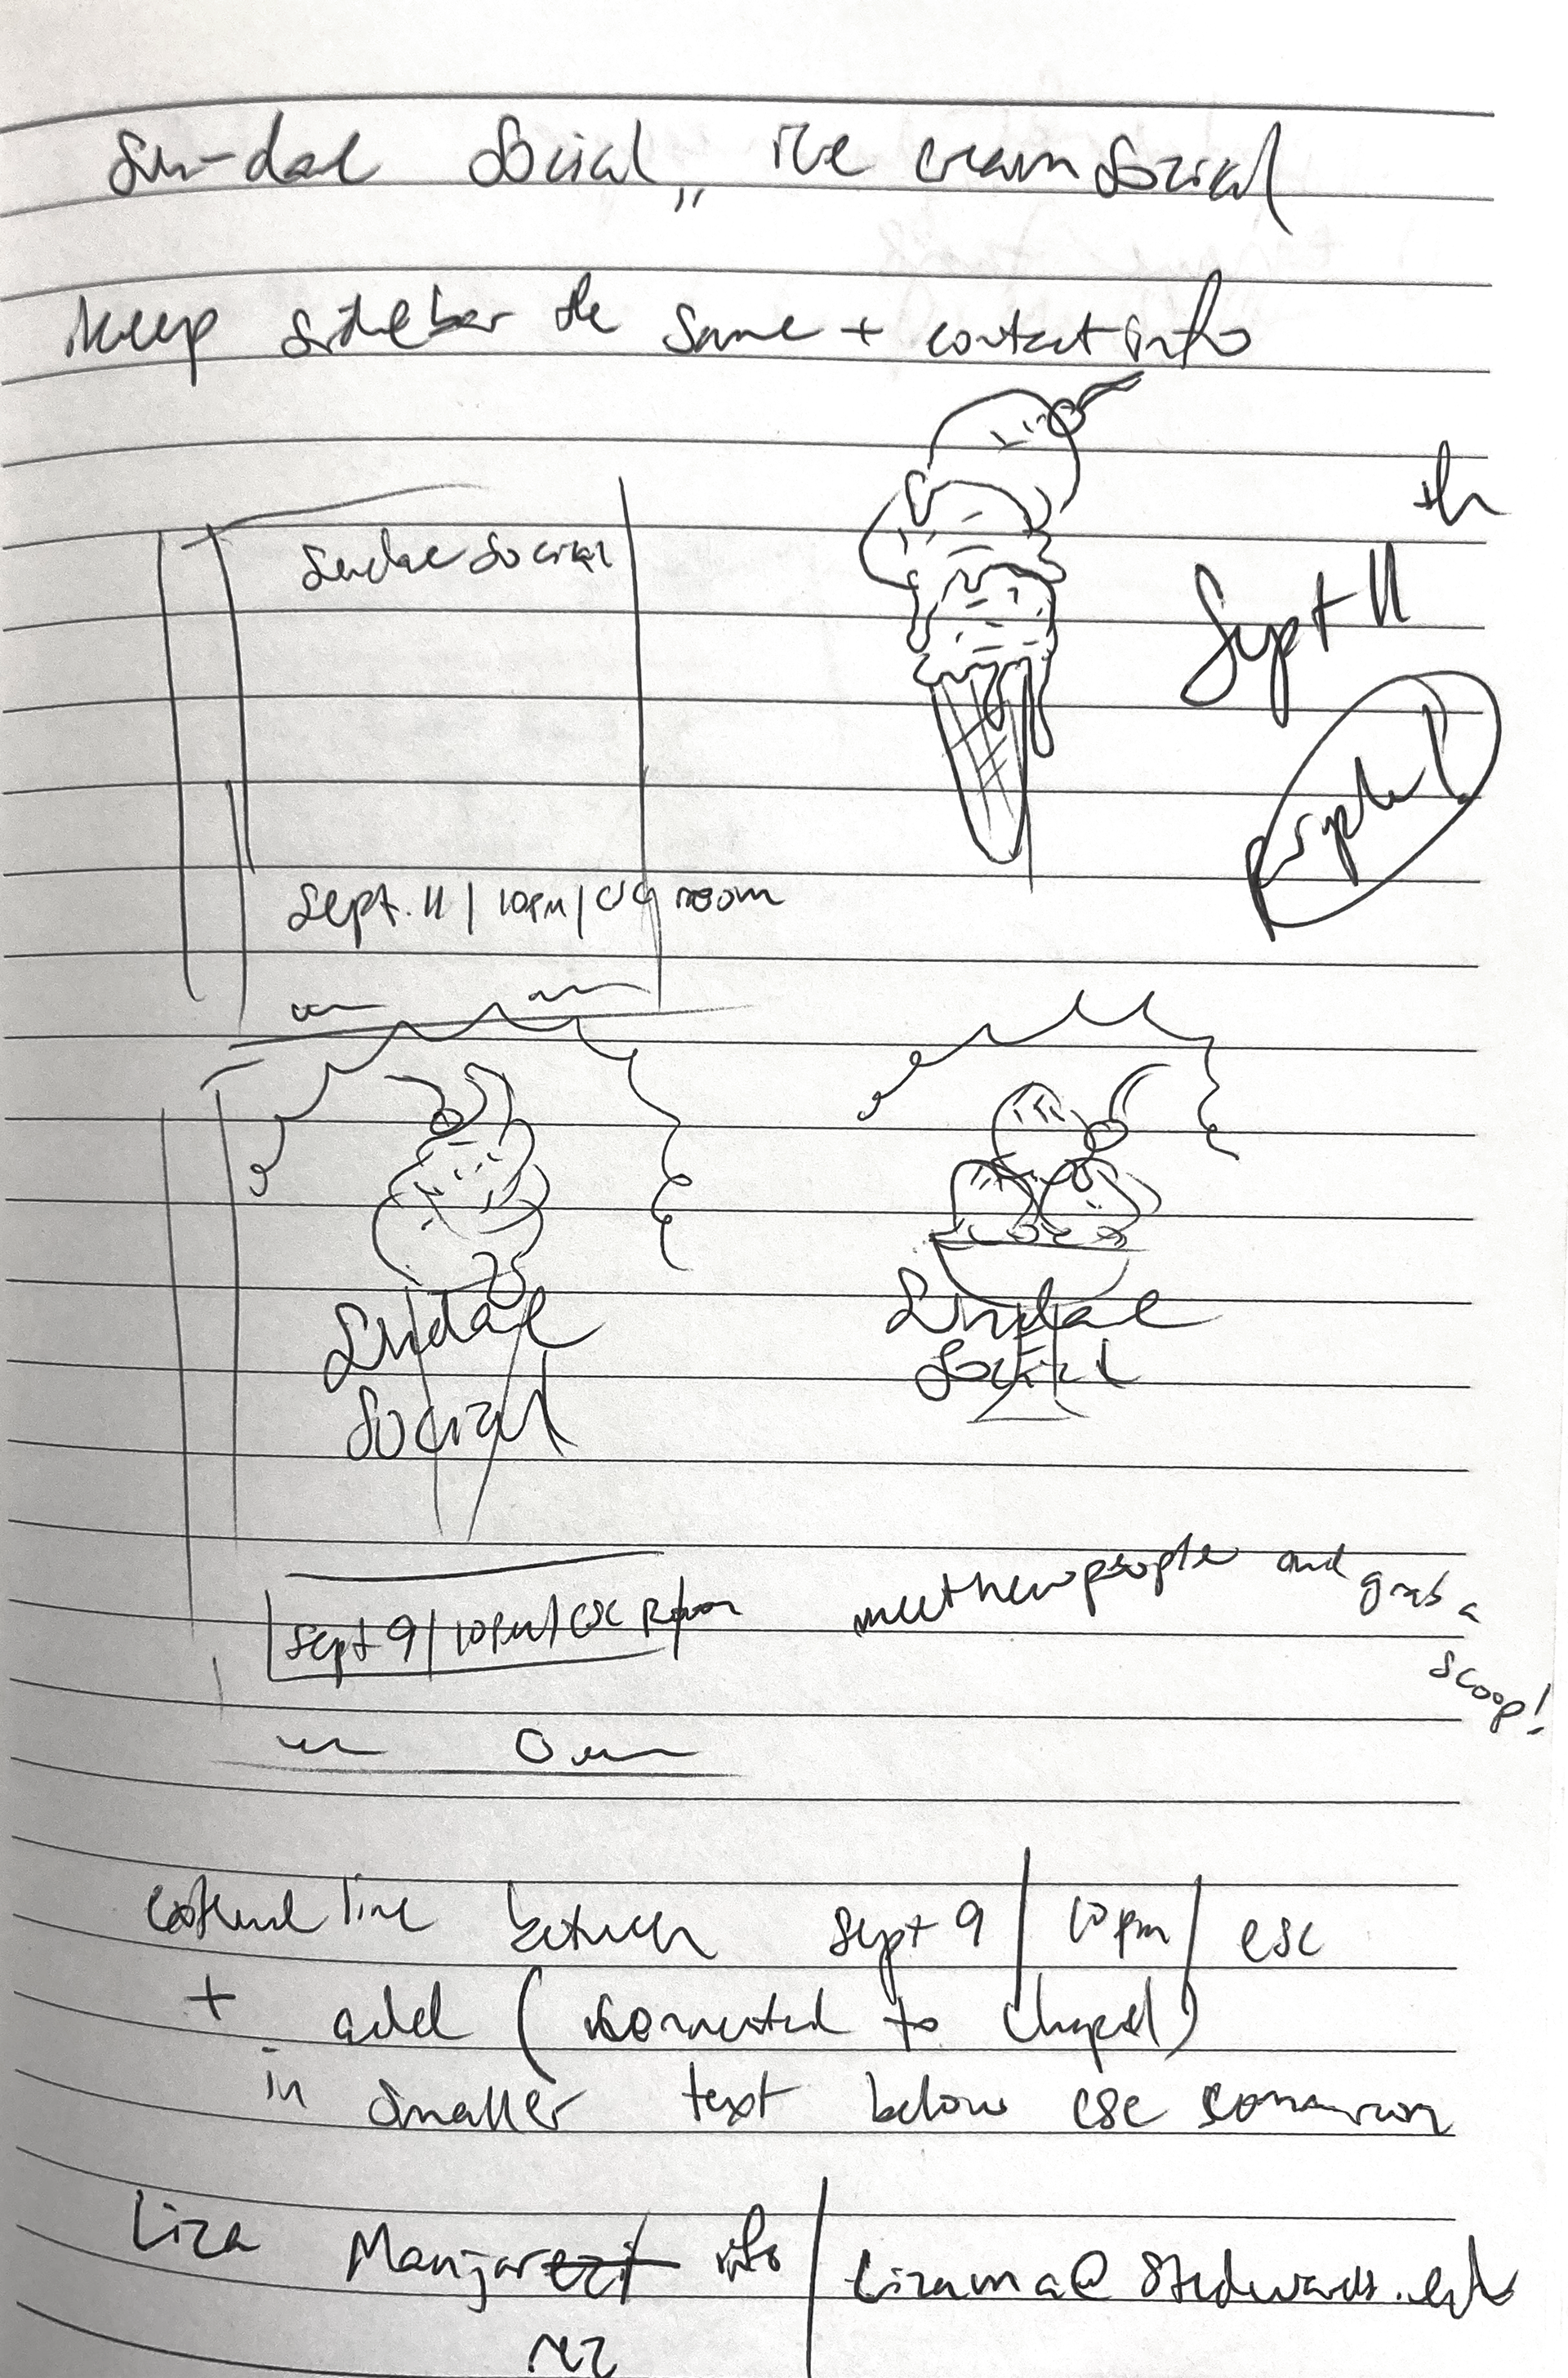 Sundae Social,, ice cream social
keep sidebar the same + contact info
Sundae Social
th
Sept 11
Sept. 11 | 10pm | room
Sundae
Social
Sundae
Social
Sept 9 | 10pm | CSC Room
meet new people and grab a
scoop!
extend line between Sept 9 | 10pm | csc
+ add (connected to chapel)
in smaller text below csc
Liza Manjar info | lizama@stedwards.edu
rez